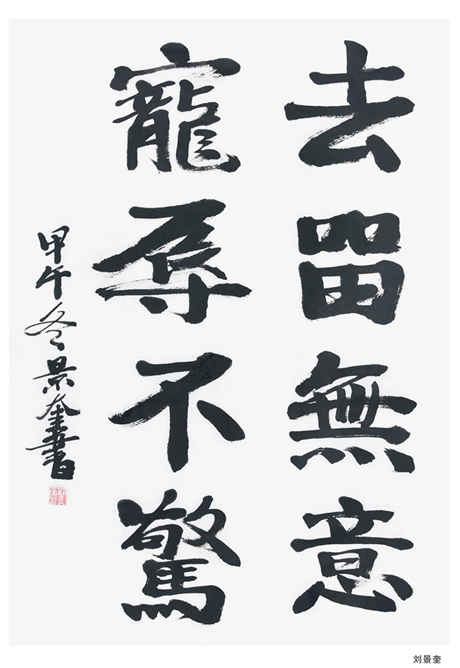 去留無意
寵辱不驚
甲午冬景奎書
刘景奎